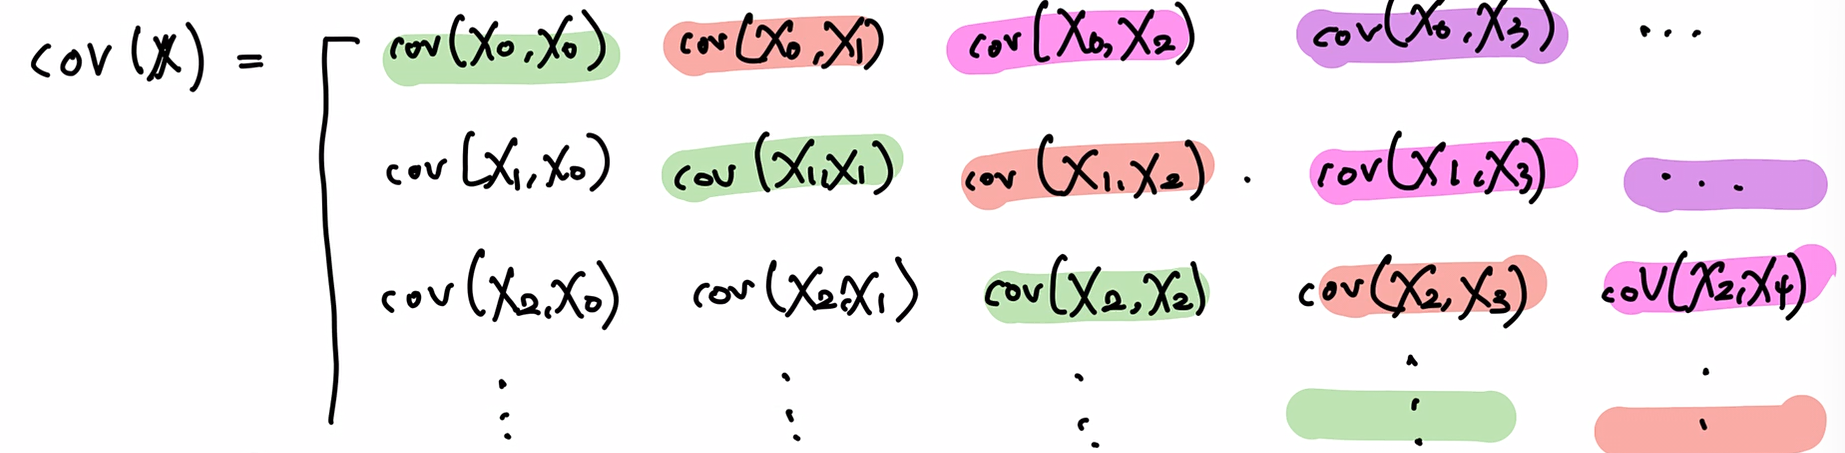 cov(X) = [ cov(X₀,X₀) cov(X₀,X₁) cov(X₀,X₂) cov(X₀,X₃) ...
cov(X₁,X₀) cov(X₁,X₁) cov(X₁,X₂) . cov(X₁,X₃) ...
cov(X₂,X₀) cov(X₂,X₁) cov(X₂,X₂) cov(X₂,X₃) cov(X₂,X₄)
⋮ ⋮ ⋮ ⋮ ⋮